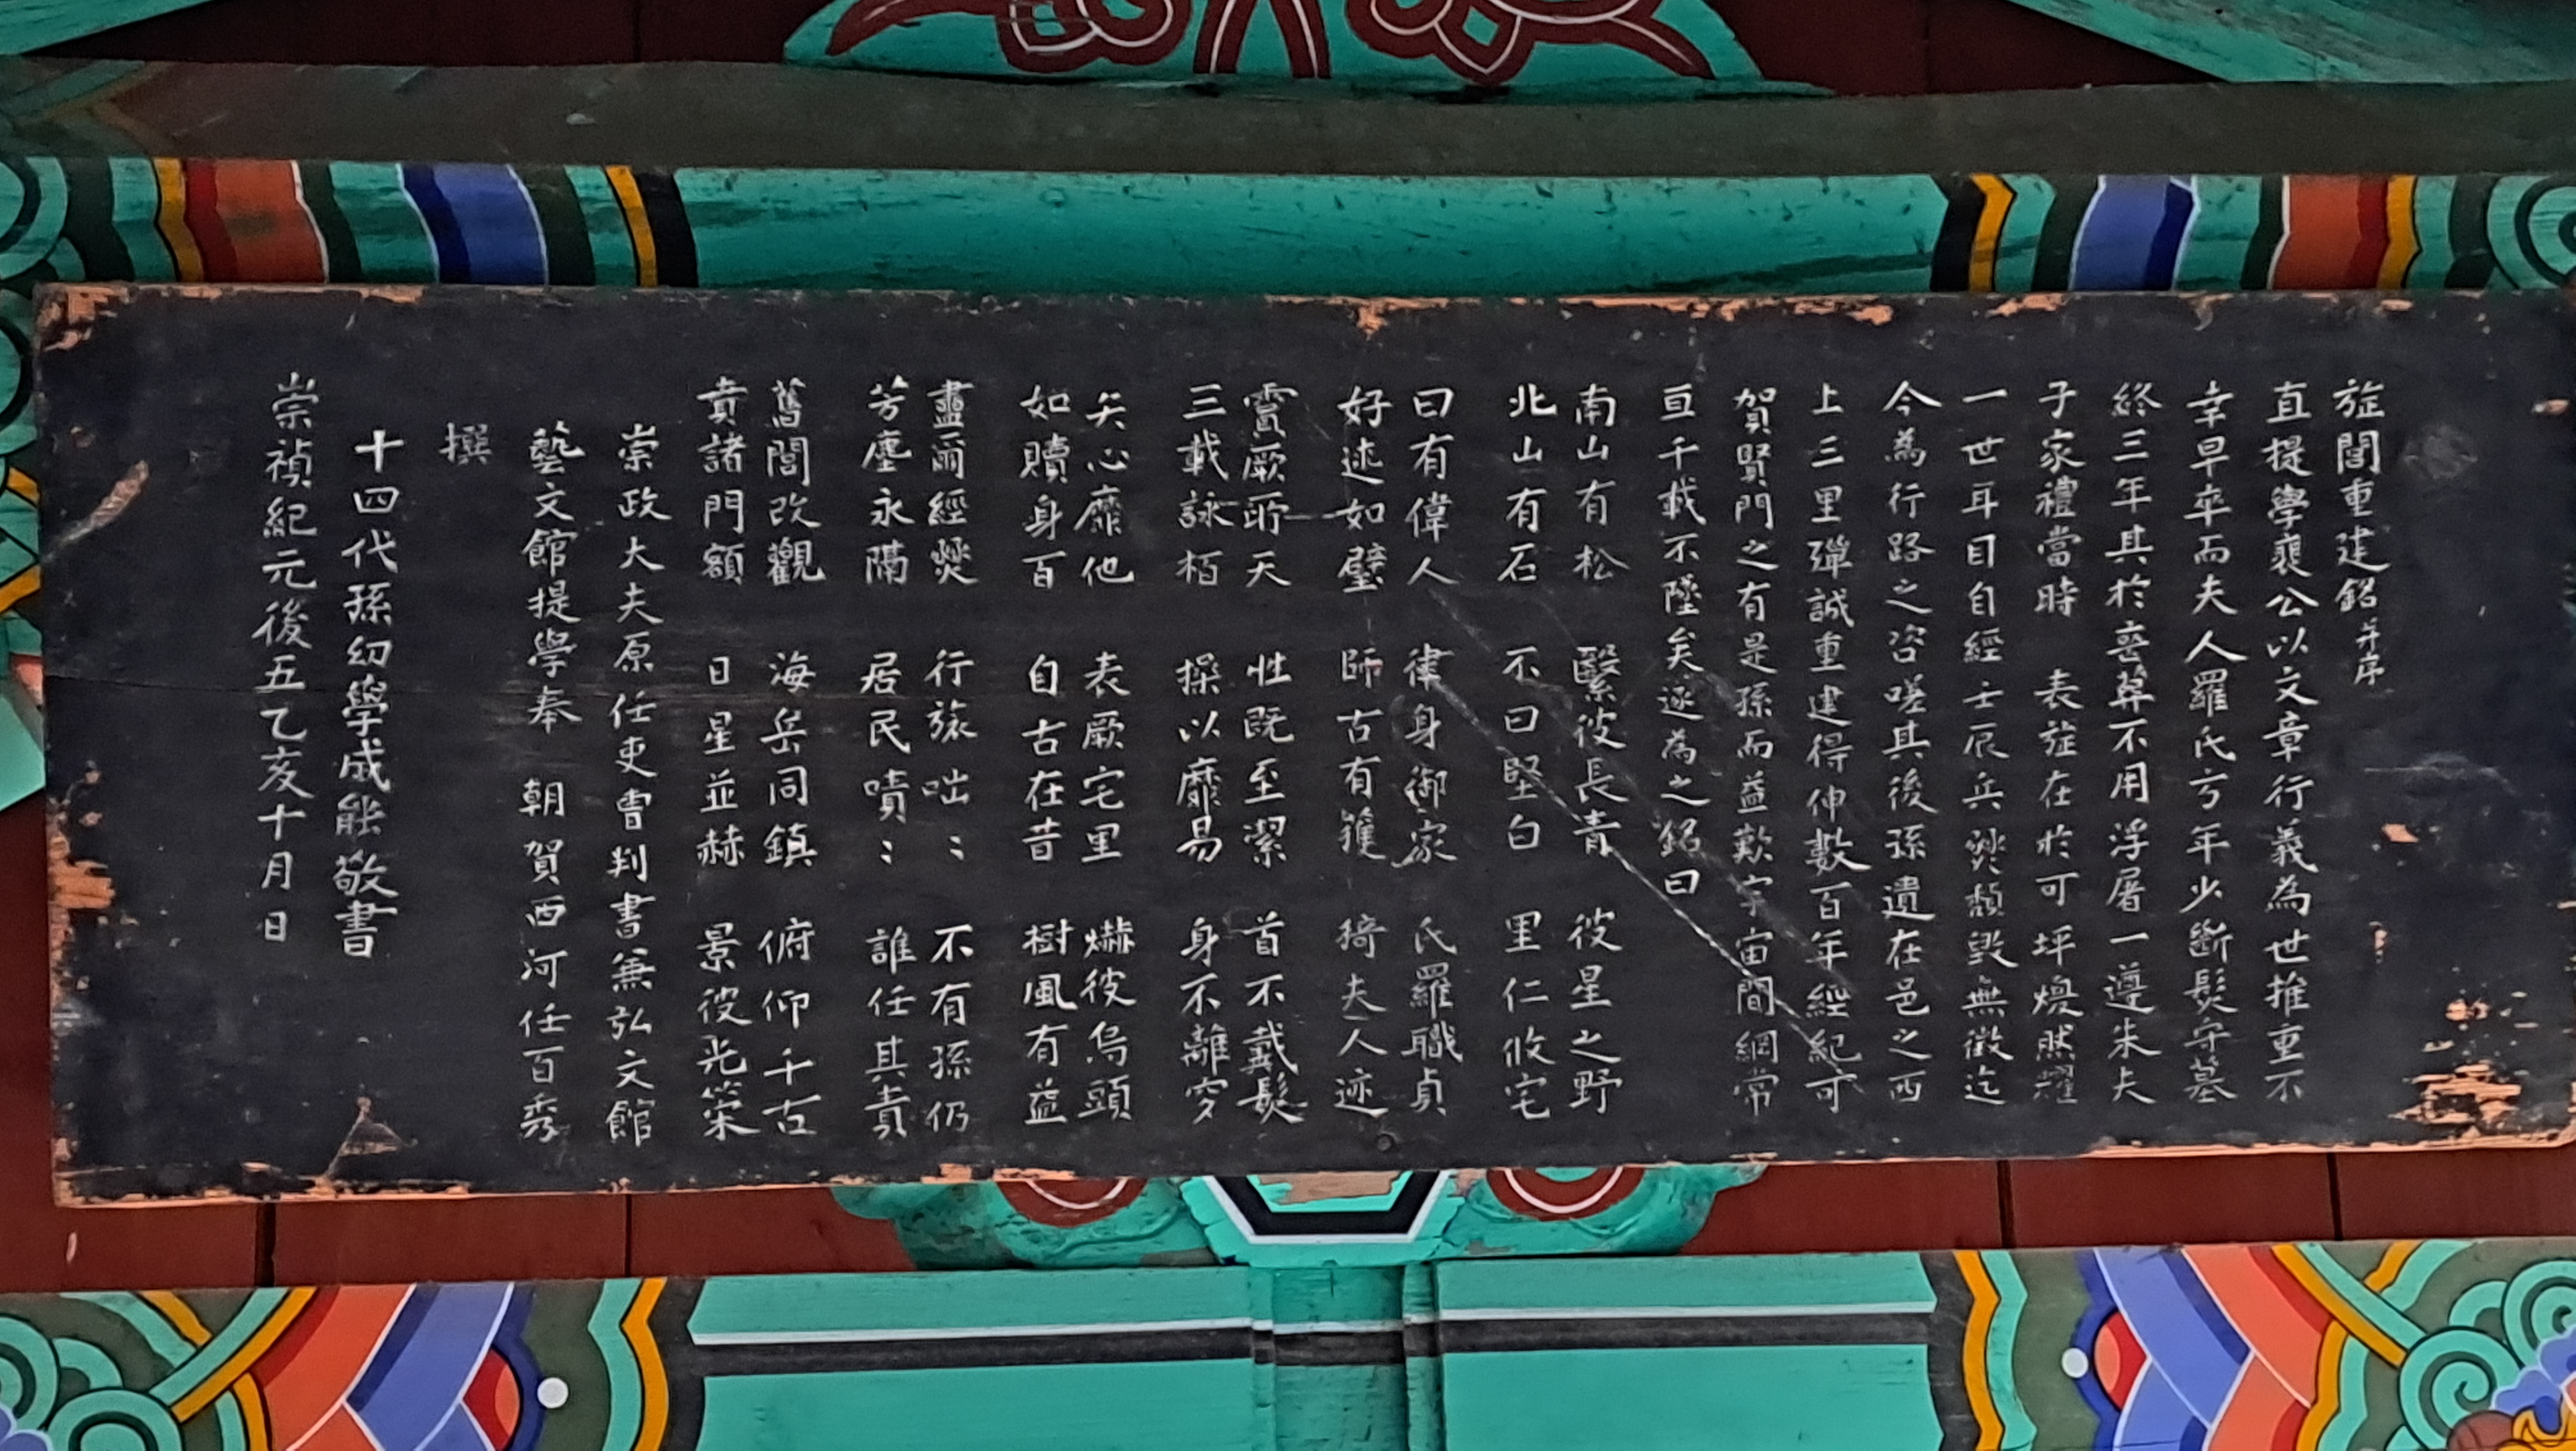 旌閭重建銘幷序
直提學裵公以文章行義為世推重不
幸早卒而夫人羅氏方年少斷髮守墓
終三年其於喪葬不用浮屠一遵朱夫
子家禮當時 表旌在於可坪煥然耀
一世耳目自經壬辰兵燹頹毀無徵迄
今為行路之咨嗟其後孫遺在邑之西
上三里殫誠重建得伸數百年經紀可
賀賢門之有是孫而益歎宇宙間綱常
亘千載不墜矣遂為之銘曰
南山有松 繄彼長青 彼星之野
北山有石 不曰堅白 里仁攸宅
曰有偉人 律身御家 氏羅職貞
好逑如璧 師古有鑊 猗夫人迹
賓厥所天 性既至潔 首不戴髮
三載詠栢 操以靡易 身不離穸
矢心靡他 表厥宅里 爀彼烏頭
如贖身百 自古在昔 樹風有益
盡爾經燹 行旅咄〻 不有孫仍
芳塵永隔 居民嘖〻 誰任其責
舊閭改觀 海岳同鎮 俯仰千古
賁諸門額 日星並赫 景彼光策
崇政大夫原任吏曹判書兼弘文館
藝文館提學奉 朝賀西河任百秀
撰
十四代孫幼學成能敬書
崇禎紀元後五乙亥十月日